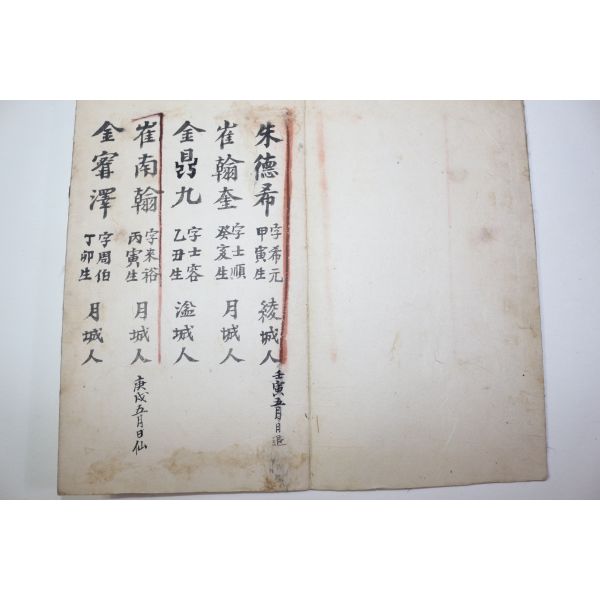 朱德希 字希元 甲寅生 綾城人 壬寅五月日退
崔翰奎 字士順 癸亥生 月城人
金鼎九 字士容 乙丑生 溢城人
崔南翰 字来裕 丙寅生 月城人 庚戌五月日仙
金寗澤 字周伯 丁卯生 月城人